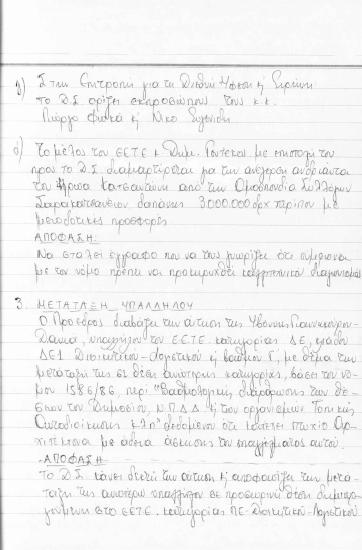 γ) Στην Επιτροπή για τη Διεθνή Ύφεση & Ειρήνη
το Δ.Σ ορίζει εκπροσώπους τους κ.κ.
Γιώργο & Νίκο
δ) Το μέλος του ΕΕΤΕ κ Δημ. με επιστολή του
προς το Δ.Σ διαμαρτύρεται για την ανέγερση ανδριάντα
του ήρωα Κατσαντώνη από την Ομοσπονδία Συλλόγων
Σαρακατσαναίων δαπάνης 3.000.000 δρχ περίπου με
μειοδοτικές προσφορές
ΑΠΟΦΑΣΗ:
Να σταλεί έγγραφο που να τους γνωρίζει ότι σύμφωνα
με τον νόμο πρέπει να προκηρυχθεί καλλιτεχνικός διαγωνισμός
3. ΜΕΤΑΤΑΞΗ ΥΠΑΛΛΗΛΟΥ
Ο Πρόεδρος διαβάζει την αίτηση της Υβόννης
υπαλλήλου του ΕΕΤΕ κατηγορίας ΔΕ, κλάδου
ΔΕ1 Διοικητικού-Λογιστικού & βαθμού Γ, με θέμα την
μετάταξή της σε θέση ανώτερης κατηγορίας, βάσει του νό-
μου 1586/86, περί "Βαθμολογικής διάρθρωσης των θέ-
σεων του Δημοσίου, ΝΠΔΔ & των οργανισμών Τοπικής
Αυτοδιοίκησης κλπ" δεδομένου ότι κατέχει πτυχίο Αρ-
χιτέκτονα με άδεια άσκησης του επαγγέλματος αυτού.
-ΑΠΟΦΑΣΗ:
Το Δ.Σ. κάνει δεκτή την αίτηση & αποφασίζει την μετά-
ταξη της ανωτέρω υπαλλήλου σε προσωρινή θέση δημιουρ-
γούμενη στο ΕΕΤΕ, κατηγορίας ΠΕ-Διοικητικού-Λογιστικού